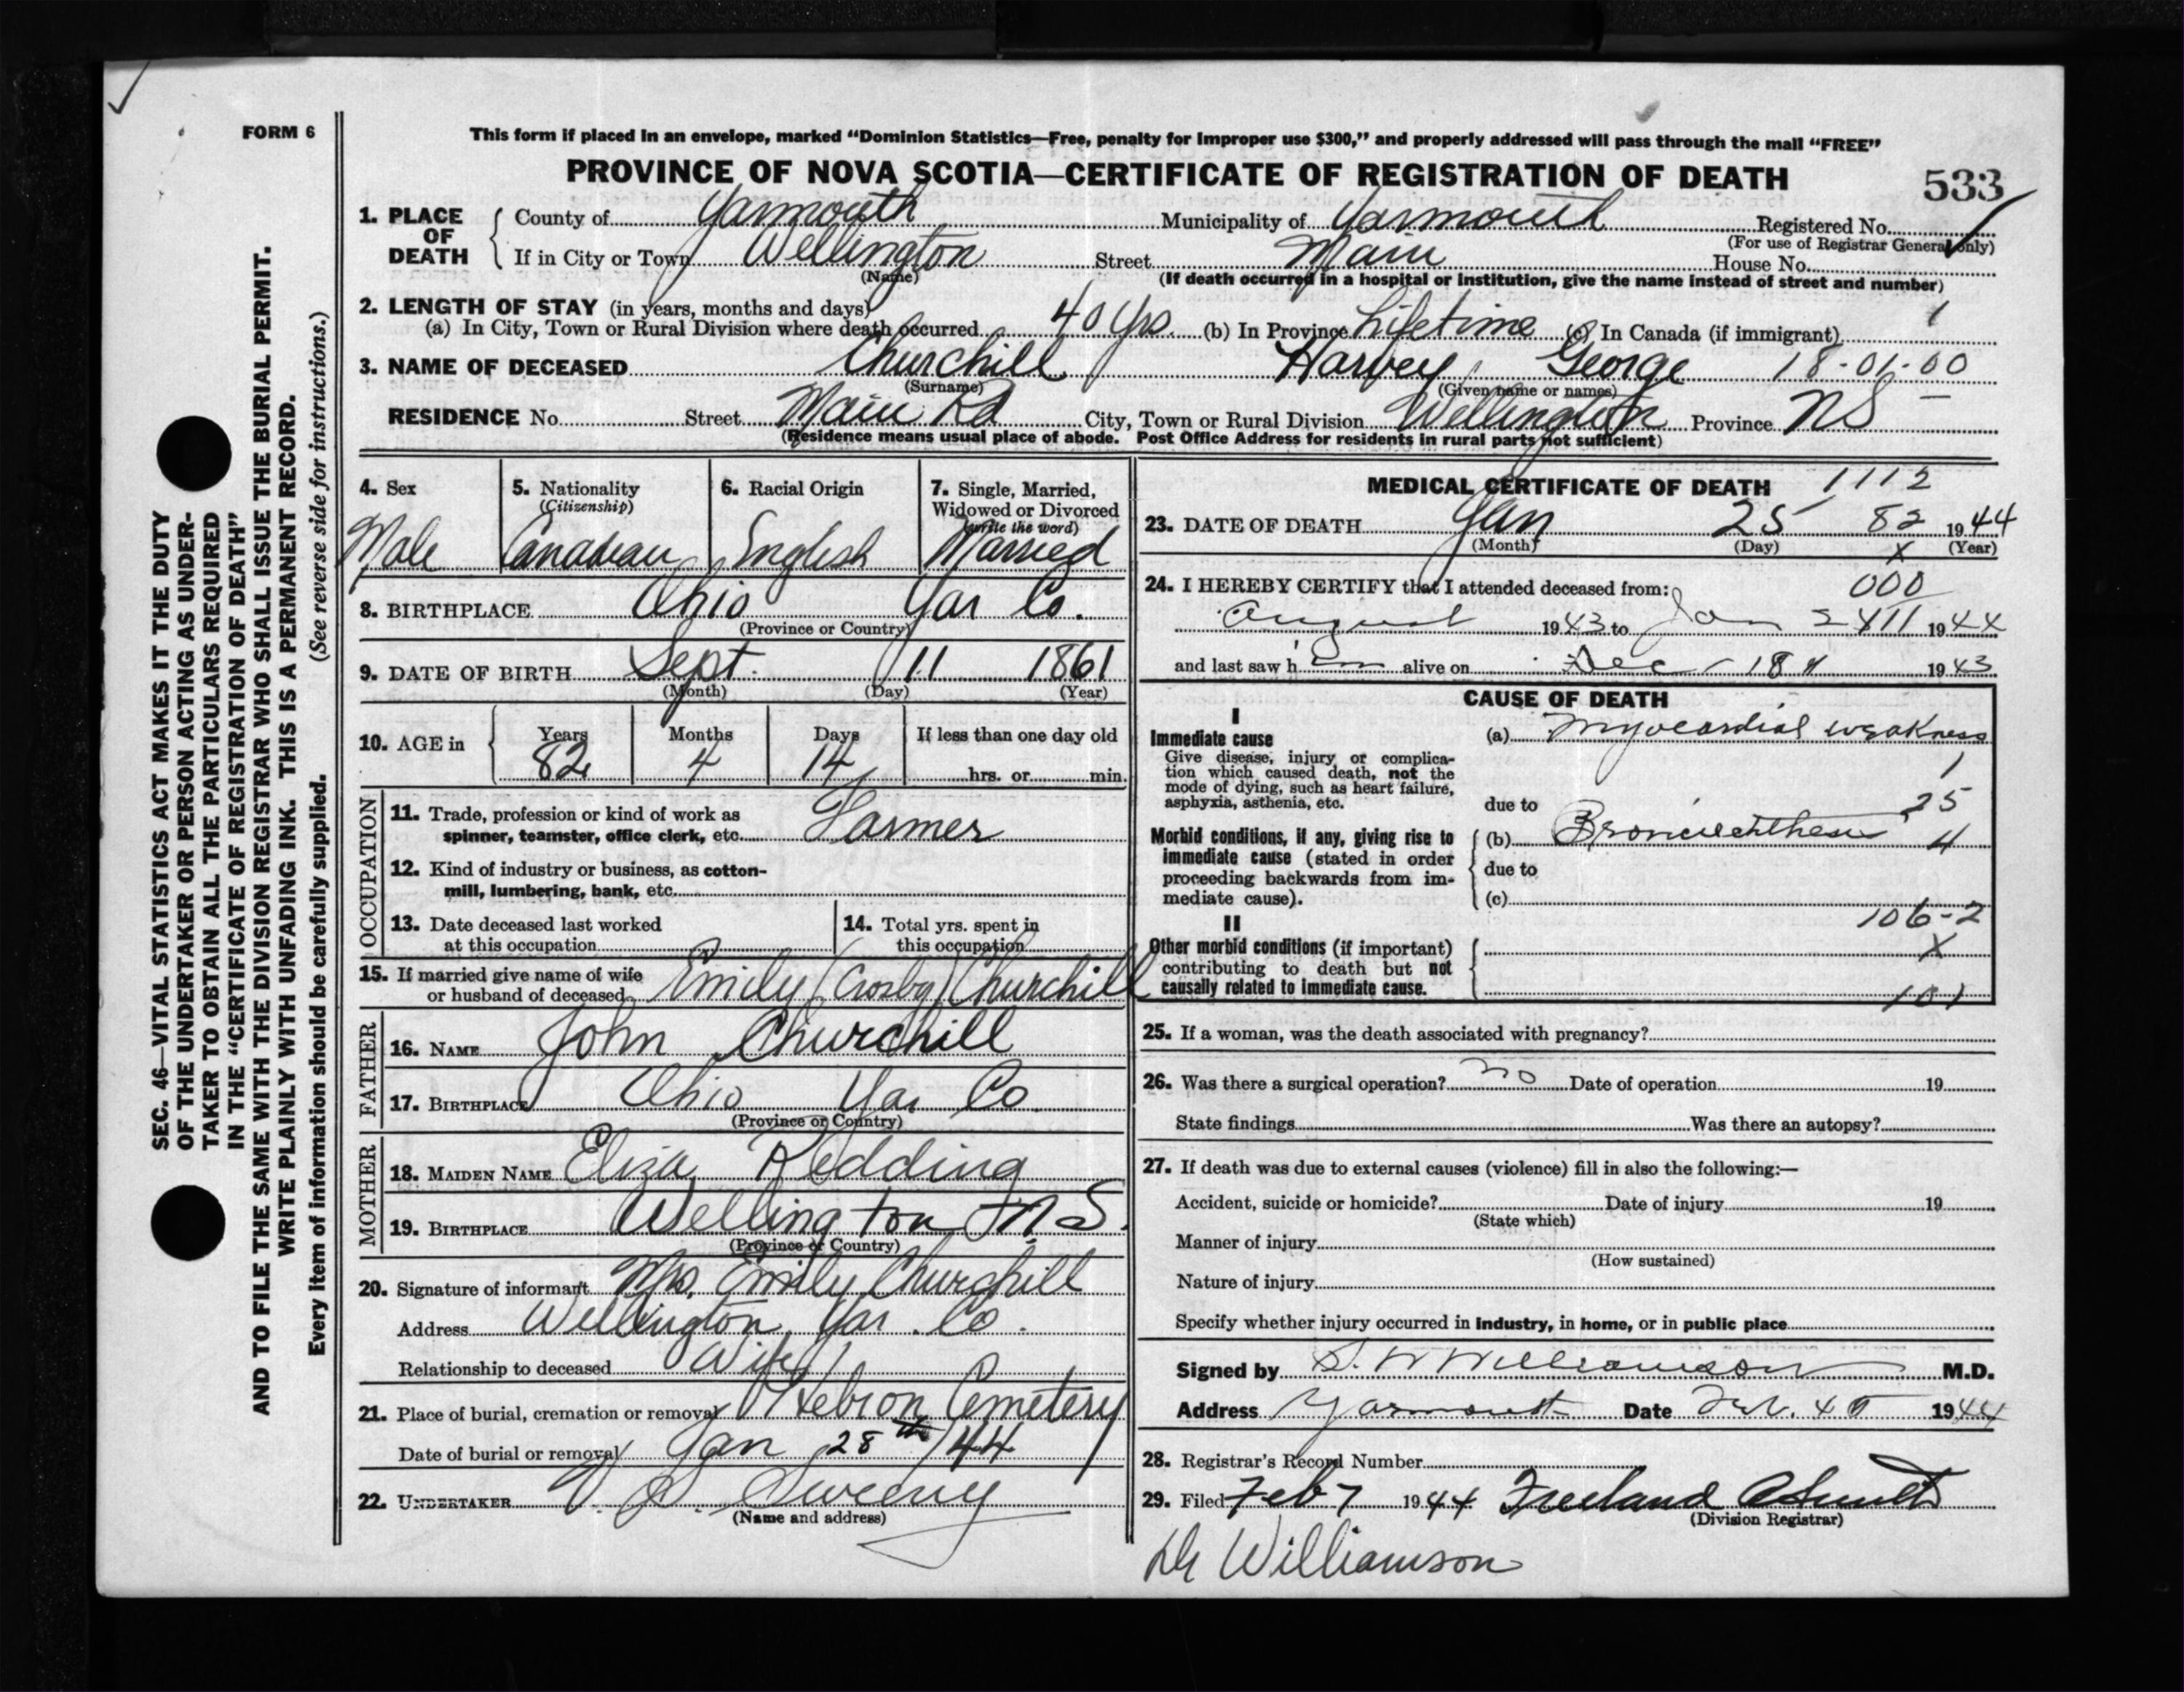 FORM 6
This form if placed in an envelope, marked “Dominion Statistics—Free, penalty for improper use $300,” and properly addressed will pass through the mail “FREE”
PROVINCE OF NOVA SCOTIA—CERTIFICATE OF REGISTRATION OF DEATH
533
SEC. 46—VITAL STATISTICS ACT MAKES IT THE DUTY
OF THE UNDERTAKER OR PERSON ACTING AS UNDER-
TAKER TO OBTAIN ALL THE PARTICULARS REQUIRED
IN THE “CERTIFICATE OF REGISTRATION OF DEATH”
AND TO FILE THE SAME WITH THE DIVISION REGISTRAR WHO SHALL ISSUE THE BURIAL PERMIT.
WRITE PLAINLY WITH UNFADING INK. THIS IS A PERMANENT RECORD.
Every item of information should be carefully supplied. (See reverse side for instructions.)
1. PLACE OF DEATH
County of Yarmouth Municipality of Yarmouth Registered No.
(For use of Registrar General only)
If in City or Town Wellington Street Main House No.
(Name) (If death occurred in a hospital or institution, give the name instead of street and number)
2. LENGTH OF STAY (in years, months and days)
(a) In City, Town or Rural Division where death occurred 40 yrs. (b) In Province Lifetime (c) In Canada (if immigrant) 1
3. NAME OF DECEASED Churchill Harvey George 18-01-00
(Surname) (Given name or names)
RESIDENCE No. Street Main Rd City, Town or Rural Division Wellington Province NS
(Residence means usual place of abode. Post Office Address for residents in rural parts not sufficient)
4. Sex
Male
5. Nationality
(Citizenship)
Canadian
6. Racial Origin
English
7. Single, Married,
Widowed or Divorced
(write the word)
Married
8. BIRTHPLACE Ohio Yar Co.
(Province or Country)
9. DATE OF BIRTH Sept. 11 1861
(Month) (Day) (Year)
10. AGE in
Years Months Days If less than one day old
82 4 14 hrs. or min.
OCCUPATION
11. Trade, profession or kind of work as
spinner, teamster, office clerk, etc. Farmer
12. Kind of industry or business, as cotton-
mill, lumbering, bank, etc.
13. Date deceased last worked
at this occupation
14. Total yrs. spent in
this occupation
15. If married give name of wife
or husband of deceased Emily (Crosby) Churchill
FATHER
16. NAME John Churchill
17. BIRTHPLACE Ohio Yar Co.
(Province or Country)
MOTHER
18. MAIDEN NAME Eliza Redding
19. BIRTHPLACE Wellington N.S.
(Province or Country)
20. Signature of informant Mrs. Emily Churchill
Address Wellington Yar. Co.
Relationship to deceased Wife
21. Place of burial, cremation or removal Hebron Cemetery
Date of burial or removal Jan 28th/44
22. UNDERTAKER V. S. Sweeny
(Name and address)
MEDICAL CERTIFICATE OF DEATH 1112
23. DATE OF DEATH Jan 25 82 1944
(Month) (Day) x (Year)
24. I HEREBY CERTIFY that I attended deceased from: 000
August 1943 to Jan 1944
and last saw h im alive on Dec 1943
CAUSE OF DEATH
I
Immediate cause
Give disease, injury or complica-
tion which caused death, not the
mode of dying, such as heart failure,
asphyxia, asthenia, etc.
(a) Myocardial weakness
1
due to
25
Morbid conditions, if any, giving rise to
immediate cause (stated in order
proceeding backwards from im-
mediate cause).
(b) 4
due to
(c)
106-2
II
Other morbid conditions (if important)
contributing to death but not
causally related to immediate cause.
x
101
25. If a woman, was the death associated with pregnancy?
26. Was there a surgical operation? no Date of operation 19
State findings Was there an autopsy?
27. If death was due to external causes (violence) fill in also the following:—
Accident, suicide or homicide? Date of injury 19
(State which)
Manner of injury
(How sustained)
Nature of injury
Specify whether injury occurred in industry, in home, or in public place
Signed by S. W Williamson M.D.
Address Yarmouth Date Feb. 1944
28. Registrar's Record Number
29. Filed Feb 7 1944 Freeland
(Division Registrar)
Dr Williamson